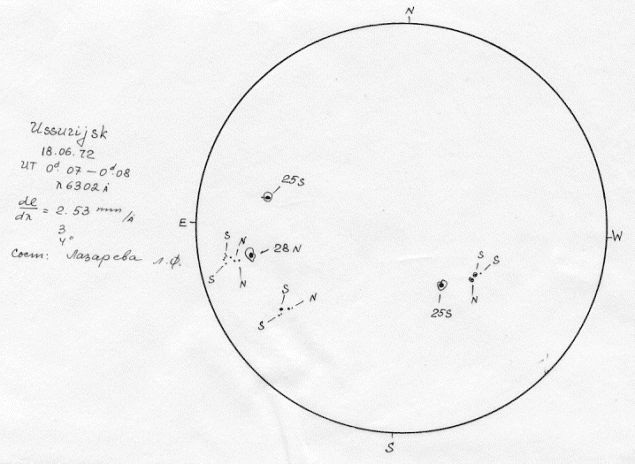 N
Ussurijsk
18.06.72
UT 0d.07 – 0d.08
λ6302 Å
dl/dλ = 2.53 mm/Å
3
4"
Сост: Лазарева Л.Ф.
25S
E
S
N
28N
S
N
W
S
S
N
S
S
N
25S
S
S